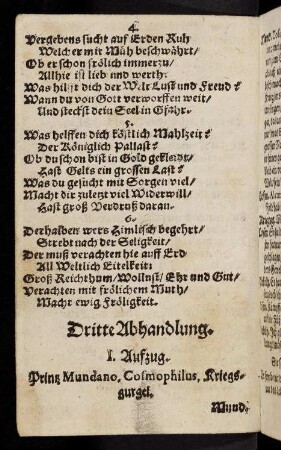 4.
Vergebens sucht auf Erden Ruh
Welch er mit Müh beschwährt/
Ob er schon frölich immerzu/
Allhie ist lieb und werth:
Was hilfft dich der Welt Lust und Freud?
Wann du von Gott verworffen weit/
Und steckst dein Seel in Gfahr.
5.
Was helffen dich köstlich Mahlzeit?
Der Königlich Pallast?
Ob du schon bist in Gold gekleidt/
Hast Gelts ein grossen Last?
Was du gesucht mit Sorgen viel/
Macht dir zulezt viel Widerwill/
Hast groß Verdruß daran.
6.
Derhalben wers Himlisch begehrt/
Strebt nach der Seligkeit/
Der muß verachten hie auff Erd
All Weltlich Eitelkeit:
Groß Reichthum/ Wollust/ Ehr und Gut/
Verachten mit frölichem Muth/
Macht ewig Fröligkeit.
Dritte Abhandlung.
I. Aufzug.
Prinz Mundano, Cosmophilus, Kriegs-
gurgel.
Mund.